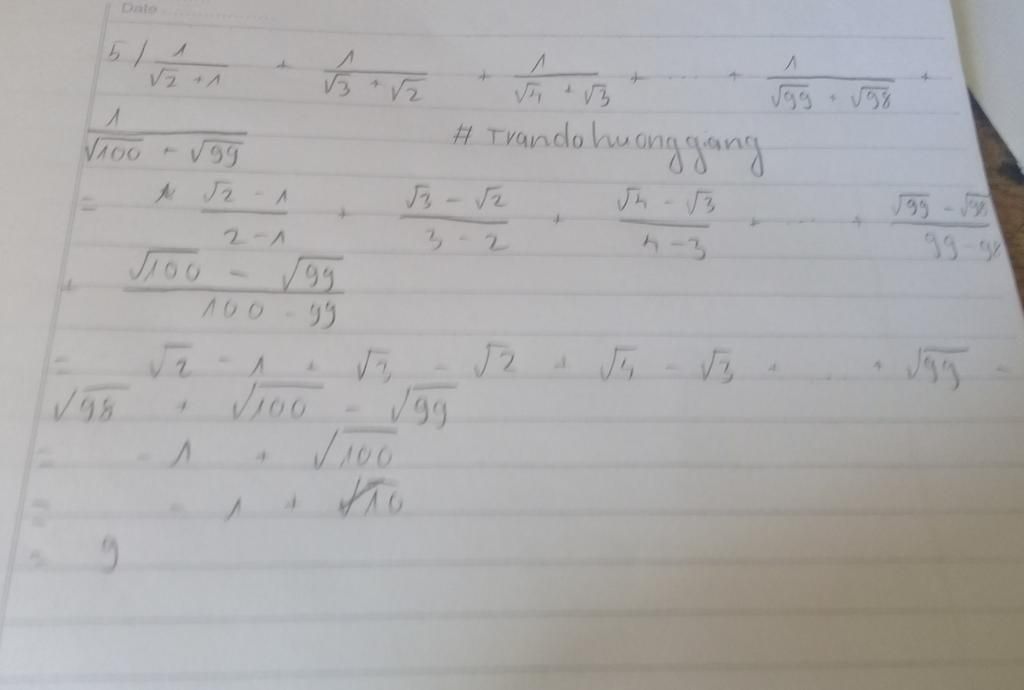 Date
5/ 1/(√2 + 1) + 1/(√3 + √2) + 1/(√4 + √3) + ... + 1/(√99 + √98) +
1/(√100 - √99) # Trandohuonggiang
= (√2 - 1)/(2 - 1) + (√3 - √2)/(3 - 2) + (√4 - √3)/(4 - 3) + ... + (√99 - √98)/(99 - 98)
+ (√100 - √99)/(100 - 99)
= √2 - 1 + √3 - √2 + √4 - √3 + ... + √99 -
√98 + √100 - √99
= - 1 + √100
= - 1 + 10
= 9